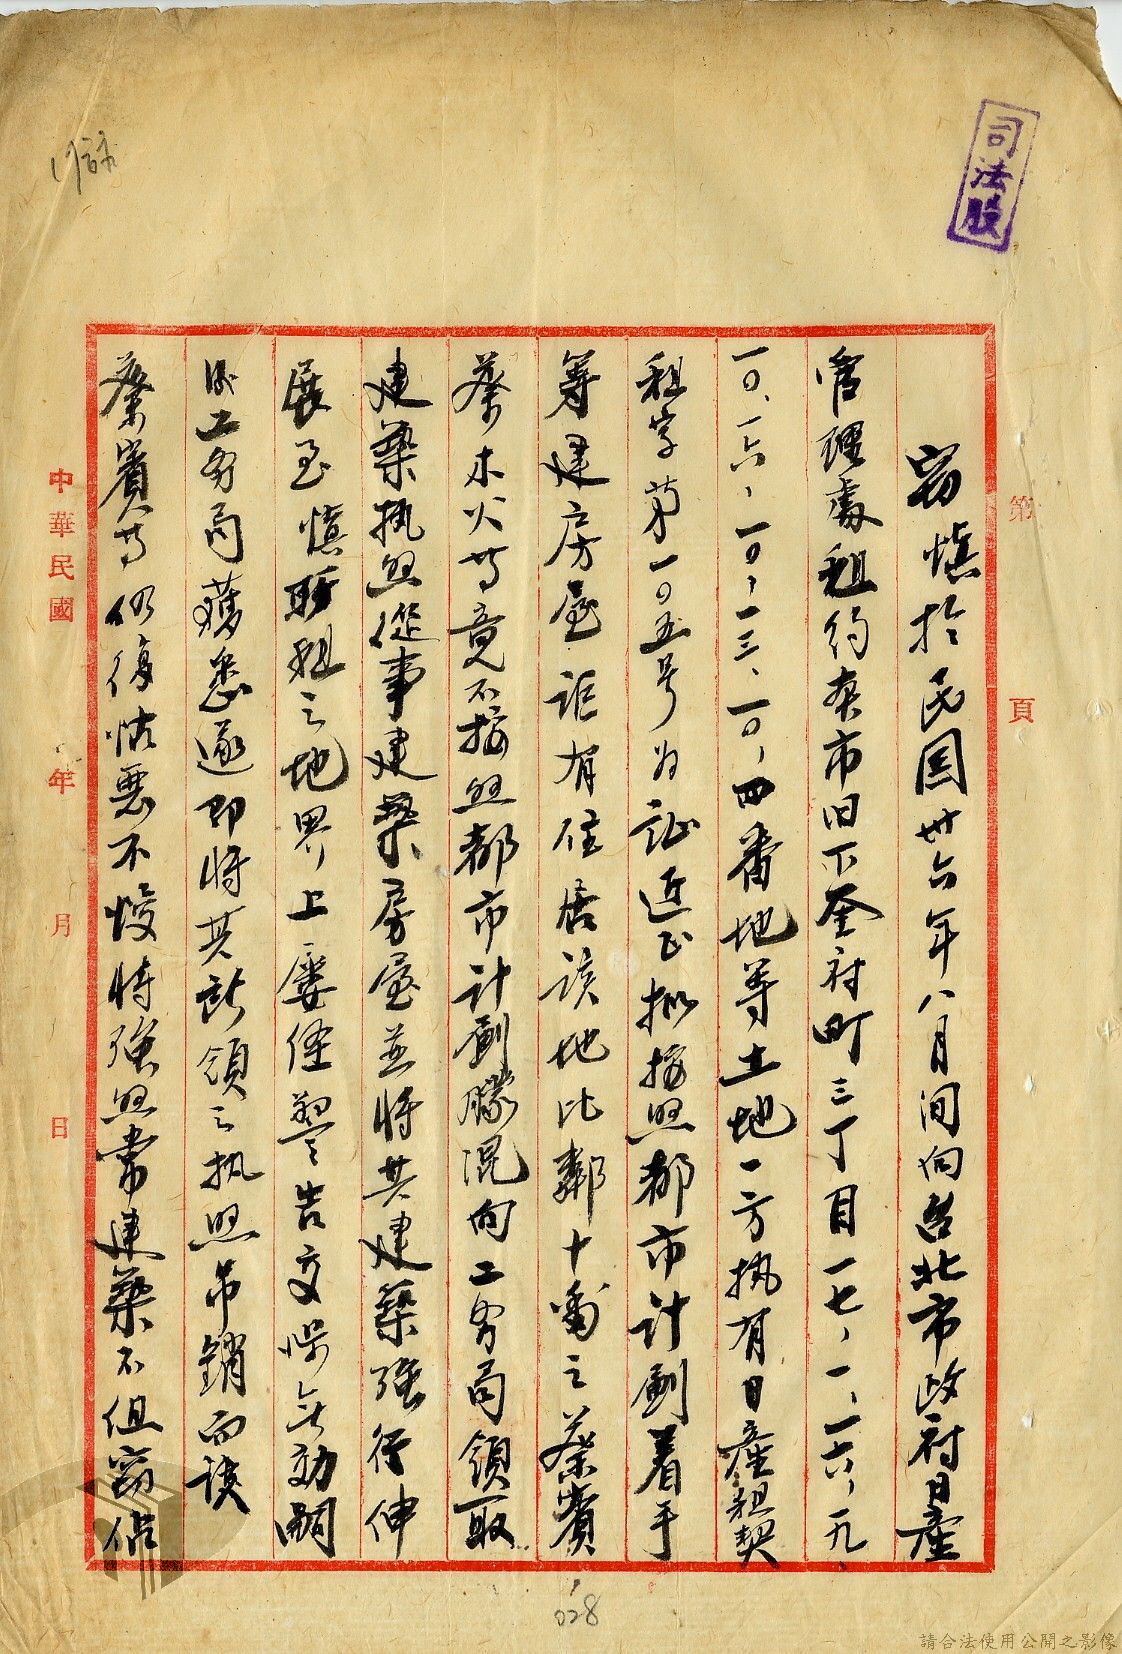 司法股
第 頁
竊慎於民国卅六年八月间向台北市政府日產
管理處租约本市旧下奎府町三丁目一七、一、一六、一九、
一〇、一六、一〇、一三、一〇、四番地等土地一方执有日產租契
租字第一〇五号为证近正拟按照都市计劃着手
筹建房屋詎有住居该地比鄰十番之蔡賓
蔡木火等竟不按照都市计劃朦混向工务局領取
建築执照從事建築房屋並将其建築强行伸
展至慎所租之地界上屡經警告交涉无効嗣
後工务局獲悉遂即将其所領之执照吊銷而该
蔡賓等仍復怙恶不悛恃强照常建築不但竊佔
中華民國 年 月 日
028
請合法使用公開之影像